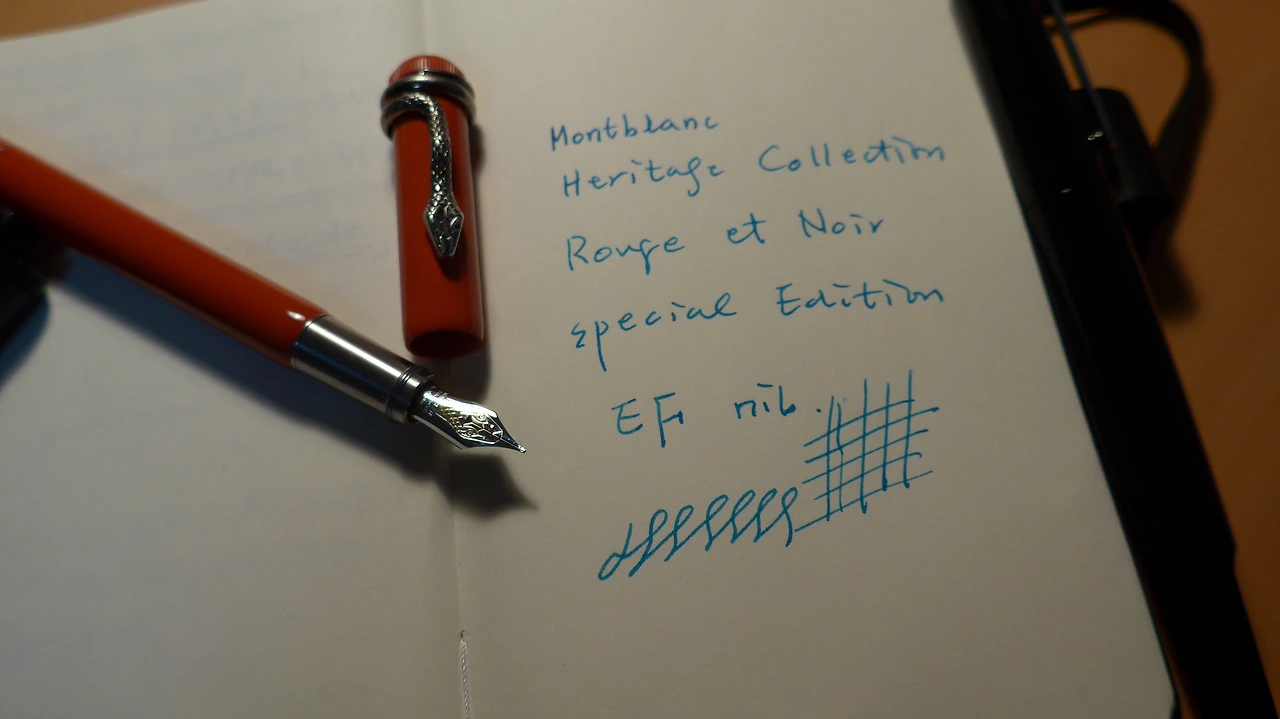 Montblanc
Heritage Collection
Rouge et Noir
special Edition
EF nib.